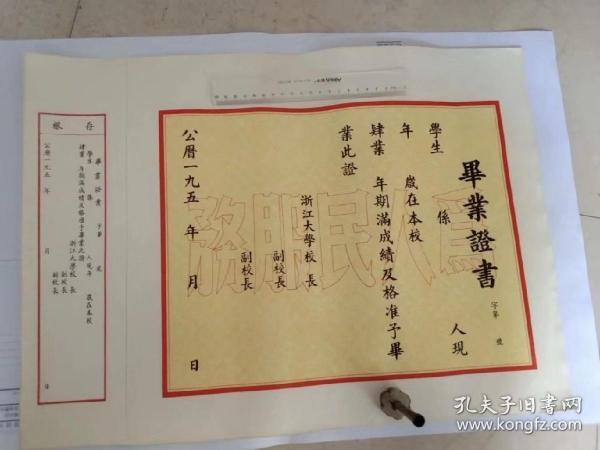 畢業證書
字第 號
學生 係 人現
年 歲在本校
肄業 年期滿成績及格准予畢
業此證
浙江大學校 長
副校長
副校長
公曆一九五 年 月 日
為人民服務
存根
畢業證書 字第 號
學生 係 人現年 歲在本校
肄業 年期滿成績及格准予畢業此證
浙江大學校 長
副校長
副校長
公曆一九五 年 月 日
孔夫子旧书网
www.kongfz.com